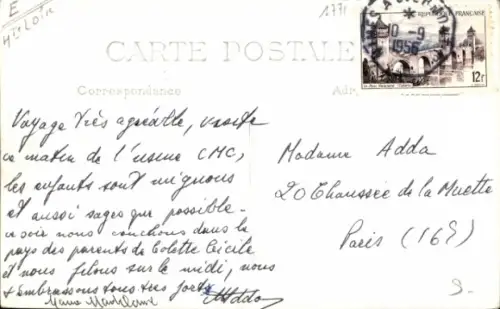 E
Hte Loire
1771
CARTE POSTALE
Correspondance
RÉPUBLIQUE FRANÇAISE
10-9
1956
12f
Voyage très agréable, visite
ce matin de l'usine CMC,
les enfants sont mignons
et aussi sages que possible -
ce soir nous couchons dans le
pays des parents de Colette Cécile
et nous filons sur le midi, nous
embrassons tous très forts
Madame Adda
20 Chaussée de la Muette
Paris (16e)